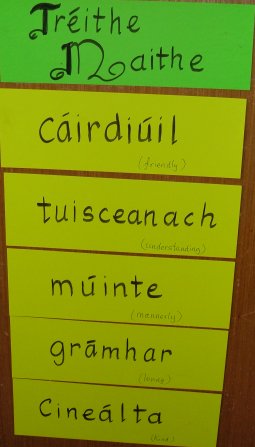 Tréithe
Maithe
Cáirdiúil
(friendly)
tuisceanach
(understanding)
múinte
(mannerly)
grámhar
(loving)
Cineálta
(kind)